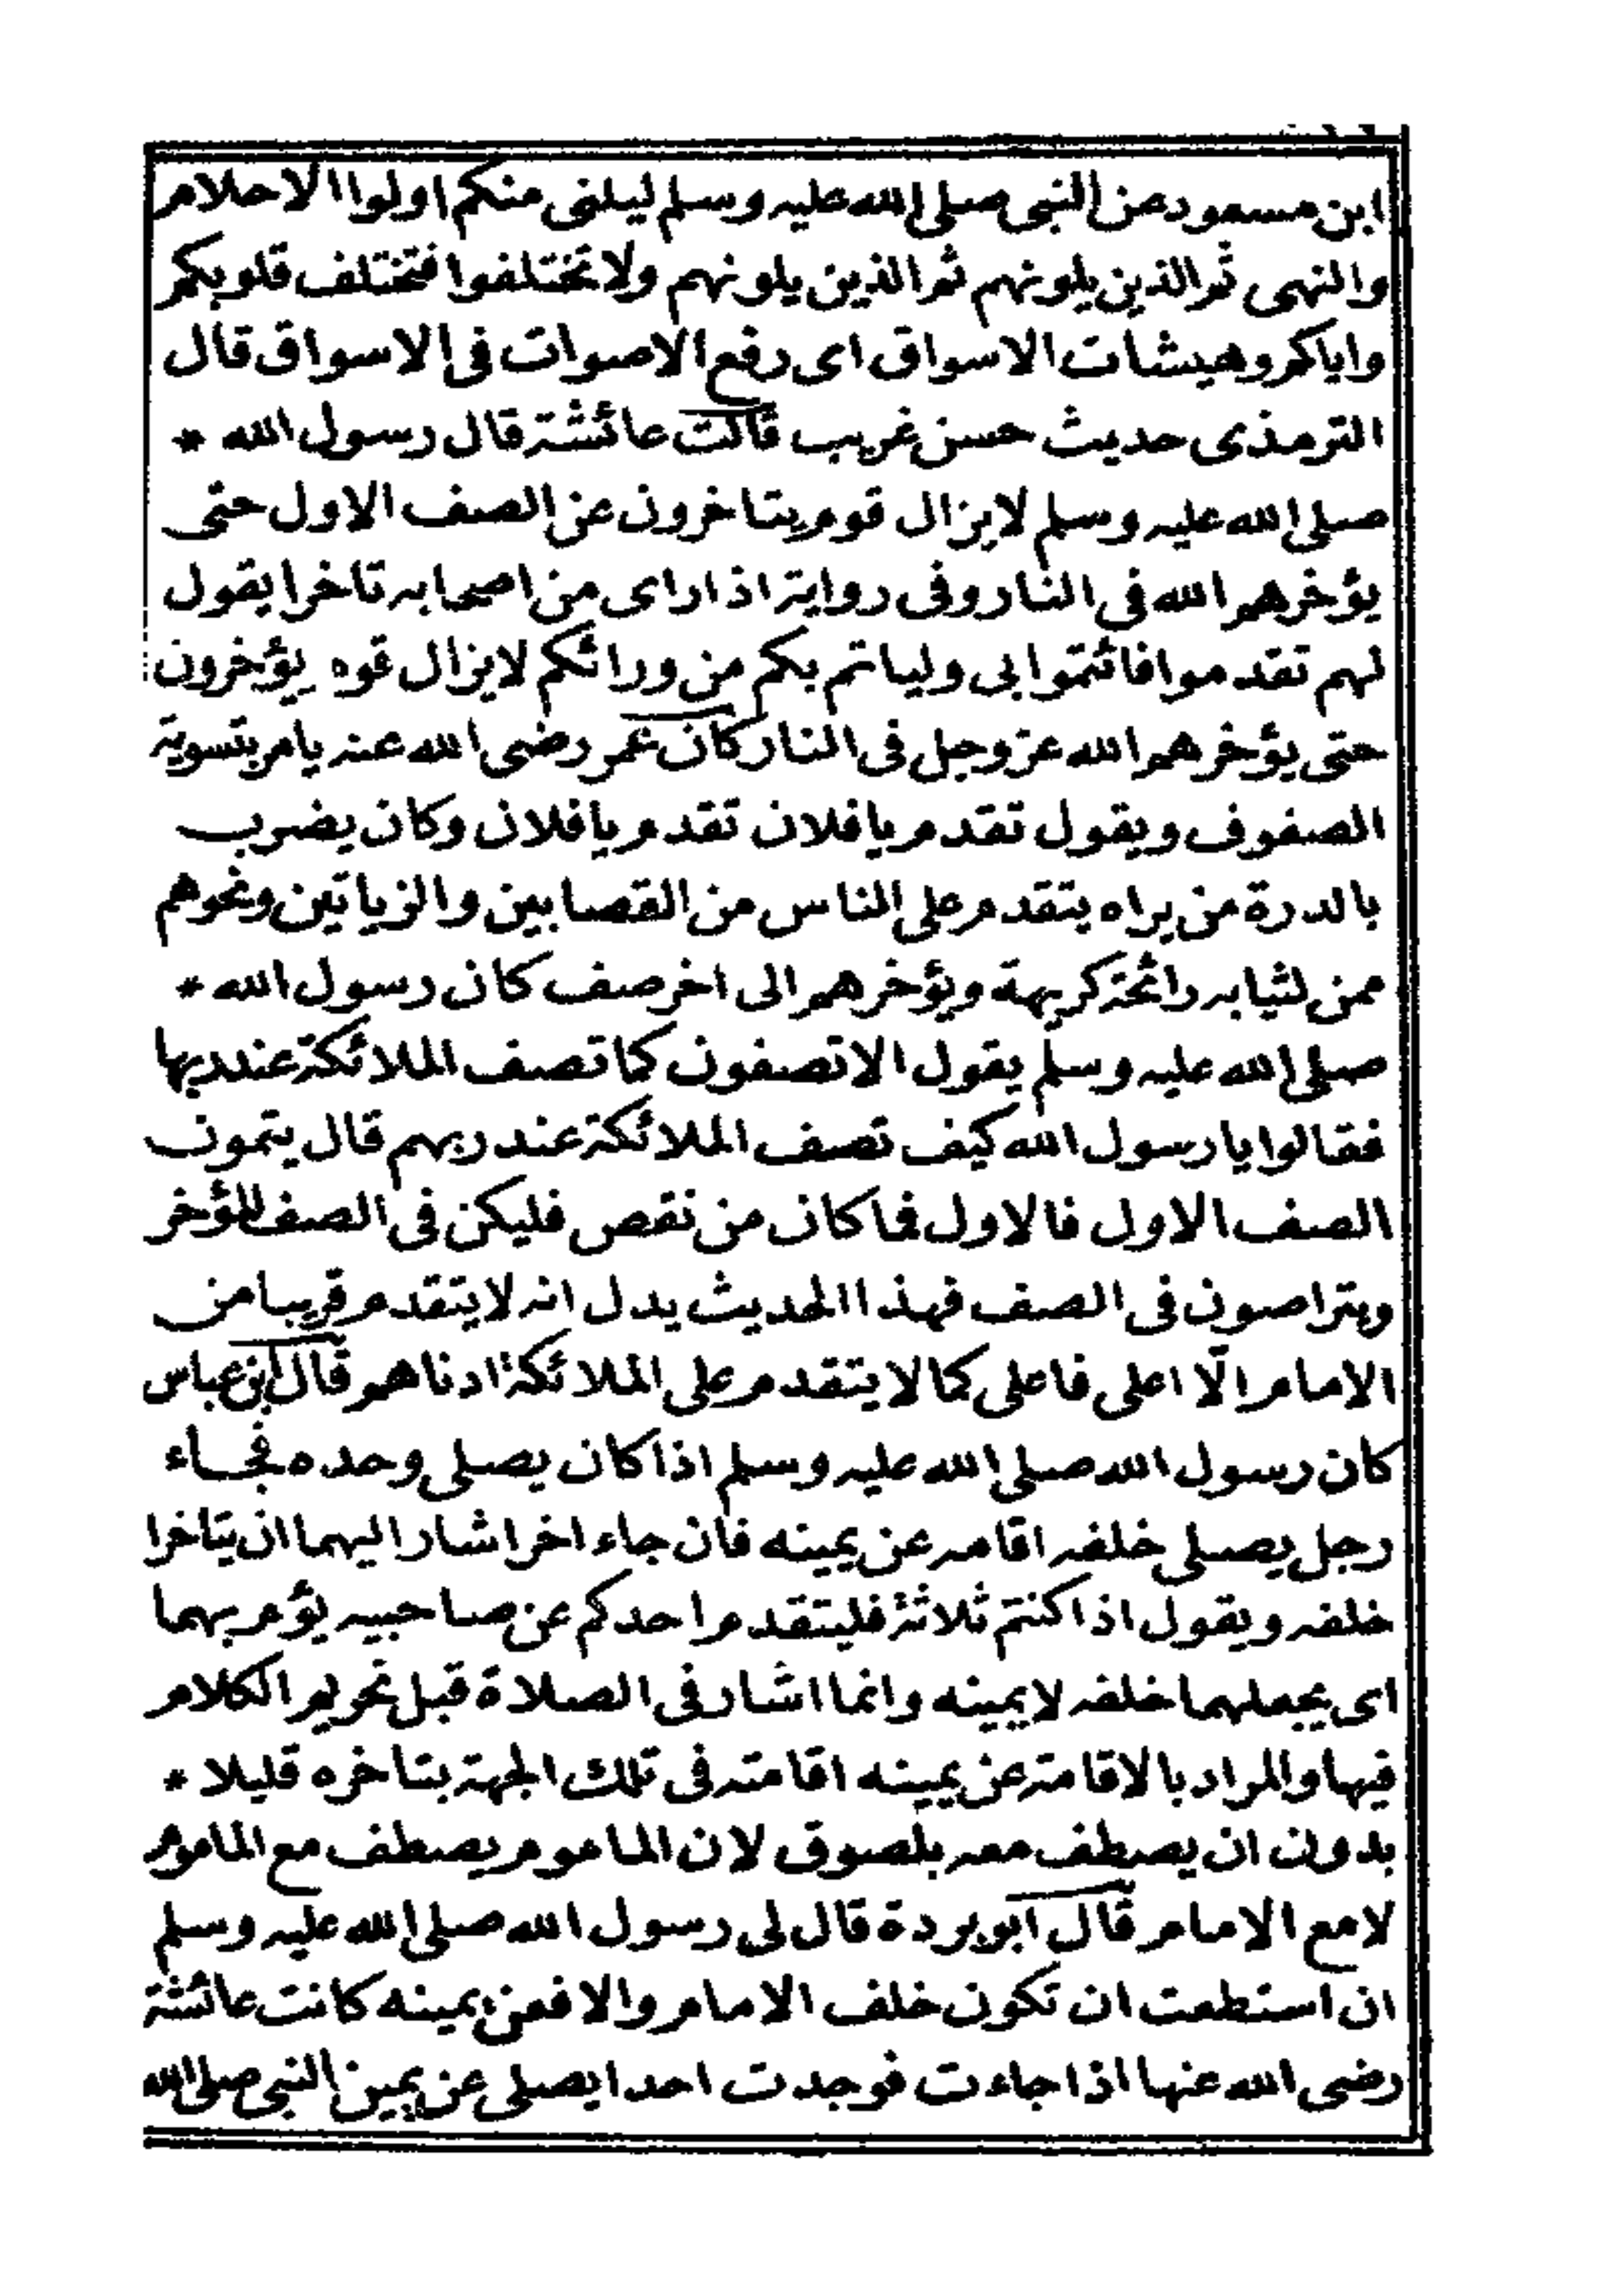 ابن مسعود عن النبى صلى الله عليه وسلم ليلنى منكم اولوا الاحلام
والنهى ثم الذين يلونهم ثم الذين يلونهم ولا تختلفوا فتختلف قلوبكم
واياكم وهيشات الاسواق اى رفع الاصوات فى الاسواق قال
الترمذى حديث حسن غريب قالت عائشة قال رسول الله *
صلى الله عليه وسلم لا يزال قوم يتاخرون عن الصف الاول حتى
يؤخرهم الله فى النار وفى رواية اذا راى من اصحابه تاخرا يقول
لهم تقدموا فائتموا بى ولياتم بكم من ورائكم لا يزال قوه يؤخرون
حتى يؤخرهم الله عز وجل فى النار كان عمر رضى الله عنه يامر بتسوية
الصفوف ويقول تقدم يا فلان تقدم يا فلان وكان يضرب
بالدرة من يراه يتقدم على الناس من القصابين والزياتين ونحوهم
ممن لثيابه رائحة كريهة ويؤخرهم الى اخر صف كان رسول الله *
صلى الله عليه وسلم يقول الا تصفون كما تصف الملائكة عند ربها
فقالوا يا رسول الله كيف تصف الملائكة عند ربهم قال يتمون
الصف الاول فالاول فما كان من نقص فليكن فى الصف المؤخر
ويتراصون فى الصف فهذا الحديث يدل انه لا يتقدم قريبا من
الامام الّا اعلى فاعلى كما لا يتقدم على الملائكة ادناهم قال ابن عباس
كان رسول الله صلى الله عليه وسلم اذا كان يصلى وحده فجاء
رجل يصلى خلفه اقامه عن يمينه فان جاء اخر اشار اليهما ان يتاخرا
خلفه ويقول اذا كنتم ثلاثة فليتقدم احدكم عن صاحبيه يؤم بهما
اى يجعلهما خلفه لا يمينه وانما اشار فى الصلاة قبل تحريم الكلام
فيها والمراد بالاقامة عن يمينه اقامته فى تلك الجهة بتاخره قليلا *
بدون ان يصطف معه بلصوق لان الماموم يصطف مع الماموم
لا مع الامام قال ابو بردة قال لى رسول الله صلى الله عليه وسلم
ان استطعت ان تكون خلف الامام والا فعن يمينه كانت عائشة
رضى الله عنها اذا جاءت فوجدت احدا يصلى عن يمين النبى صلى الله